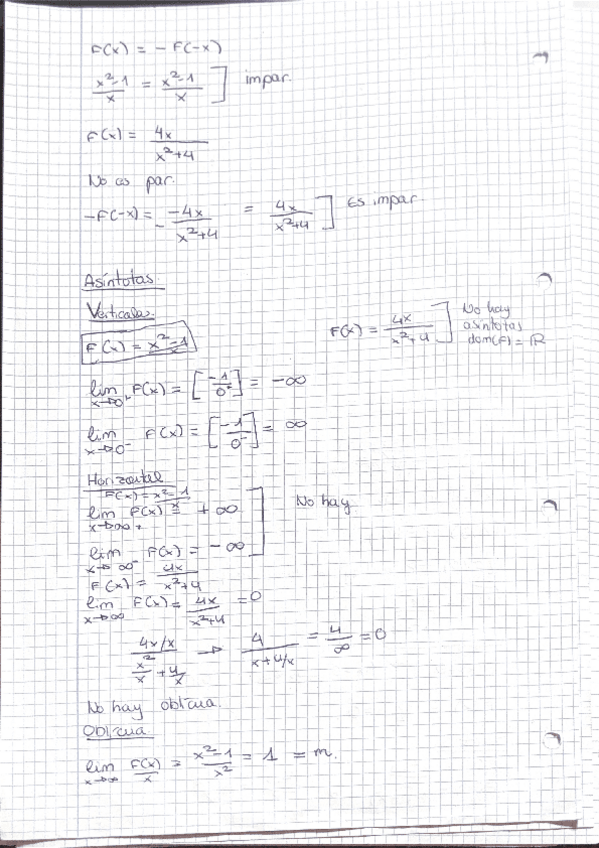 F(x) = - F(-x)
x²-1/x = x²-1/x ] impar.
F(x) = 4x/x²+4
No es par.
-F(-x) = - -4x/x²+4 = 4x/x²+4 ] Es impar
Asíntotas
Verticales
F(x) = x²-1/x
F(x) = 4x/x²+4 ] No hay
asíntotas
dom(F) = ℝ
lim x→0⁺ F(x) = [-1/0⁺] = -∞
lim x→0⁻ F(x) = [-1/0⁻] = ∞
Horizontal
F(x) = x²-1/x
lim x→∞+ F(x) = +∞
No hay
lim x→∞⁻ F(x) = -∞
F(x) = 4x/x²+4
lim x→∞ F(x) = 4x/x²+4 = 0
4x/x / x²/x + 4/x → 4/x+4/x = 4/∞ = 0
No hay oblicua
Oblicua
lim x→∞ F(x)/x = x²-1/x² = 1 = m.